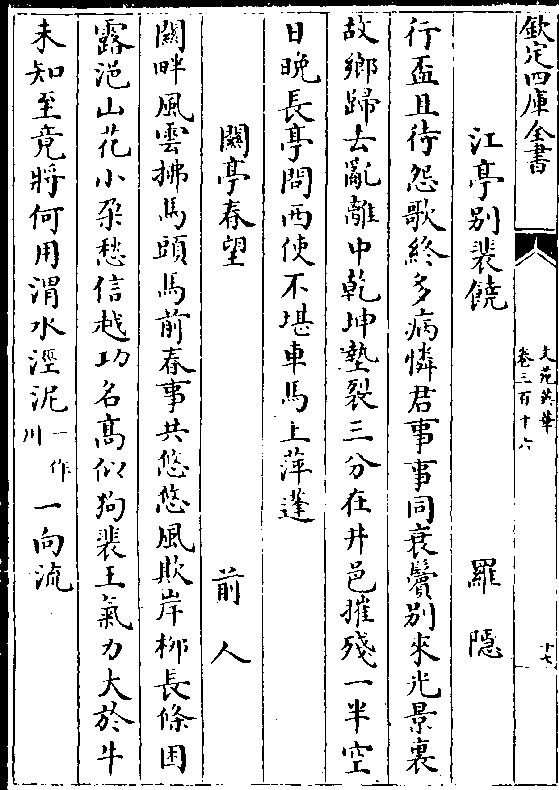 欽定四庫全書
文苑英華
卷三百十六
十七
江亭别裴饒
羅隱
行盃且待怨歌終多病憐君事事同衰鬢别來光景裏
故鄉歸去亂離中乾坤墊裂三分在井邑摧殘一半空
日晚長亭問西使不堪車馬上萍蓬
闕亭春望
前人
闕畔風雲拂馬頭馬前春事共悠悠風欺岸柳長條困
露浥山花小朶愁信越功名高似狗裴王氣力大於牛
未知至竟將何用渭水涇泥一作川一向流